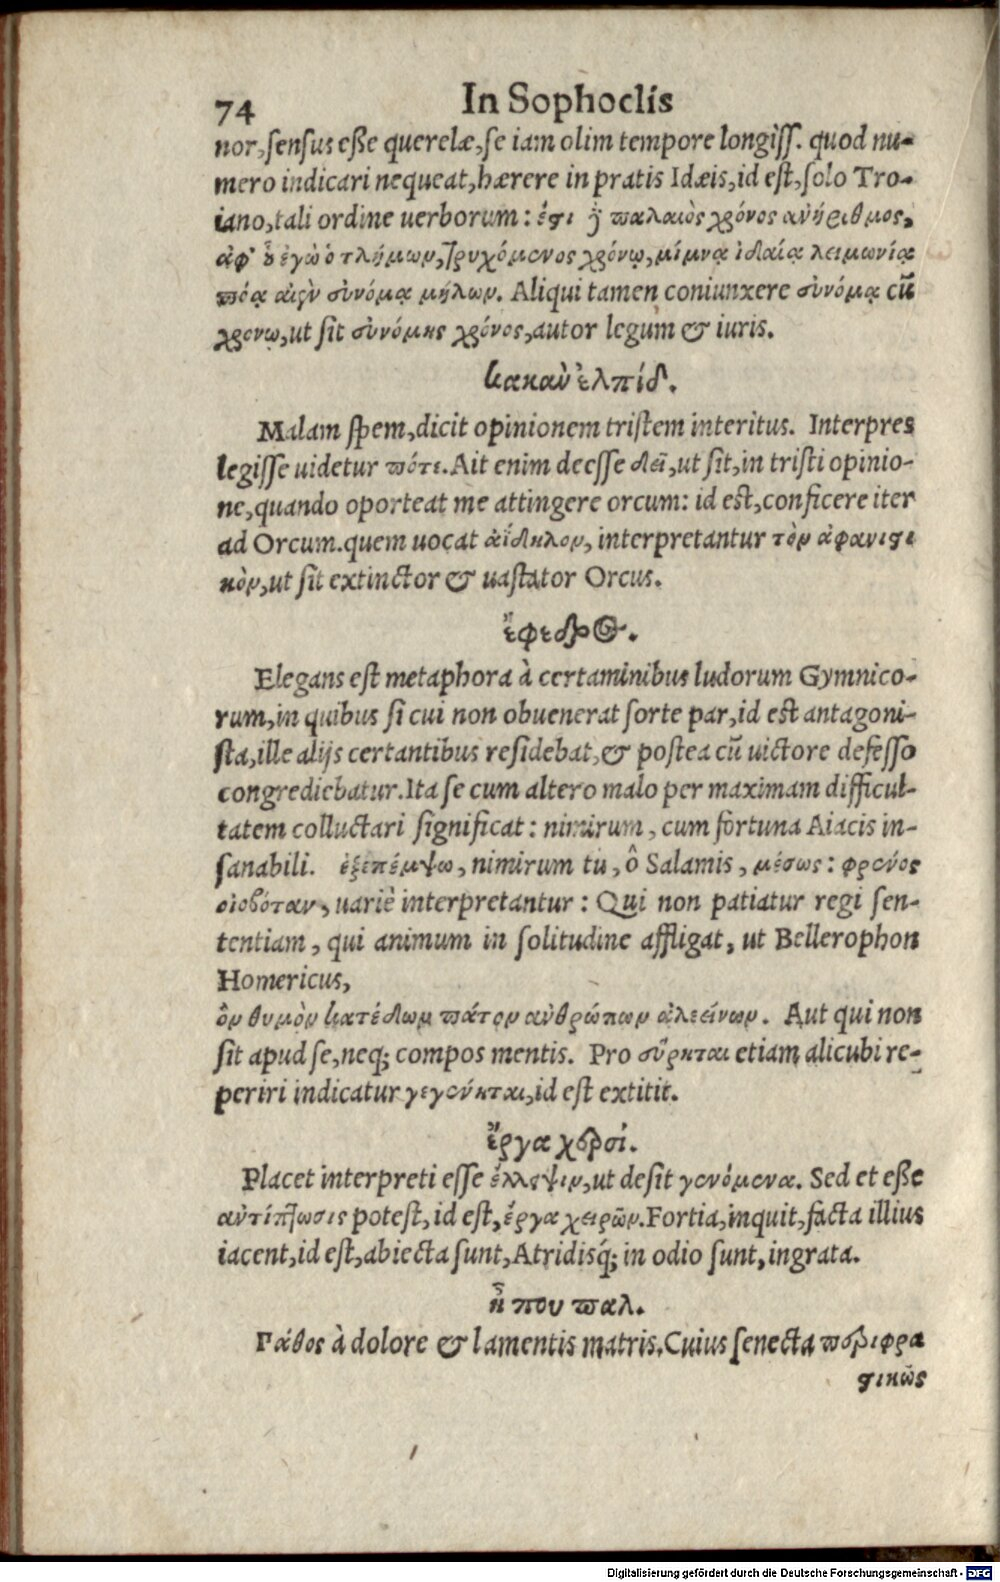 74 In Sophoclis
nor, sensus eße querelæ, se iam olim tempore longiss. quod nu-
mero indicari nequeat, hærere in pratis Idæis, id est, solo Tro-
iano, tali ordine uerborum: ἔϛι ὁ παλαιὸς χρόνος ἀνήριθμος,
ἀφ' οὗ ἐγὼ ὁ τλήμων, τρυχόμενος χρόνῳ, μίμνω ἰδαίᾳ λειμωνίᾳ
πόᾳ αἰὲν συνόμᾳ μήλων. Aliqui tamen coniunxere συνόμᾳ cū
χρονῳ, ut sit συνόμης χρόνος, autor legum & iuris.
κακὰν ἐλπίδ.
Malam spem, dicit opinionem tristem interitus. Interpres
legisse uidetur πότε. Ait enim deesse δεῖ, ut sit, in tristi opinio-
ne, quando oporteat me attingere orcum: id est, conficere iter
ad Orcum. quem uocat ἀΐδηλον, interpretantur τὸν ἀφανιϛι
κὸν, ut sit extinctor & uastator Orcus.
ἔφεδρος.
Elegans est metaphora à certaminibus ludorum Gymnico-
rum, in quibus si cui non obuenerat sorte par, id est antagoni-
sta, ille alijs certantibus residebat, & postea cū uictore defesso
congrediebatur. Ita se cum altero malo per maximam difficul-
tatem colluctari significat: nimirum, cum fortuna Aiacis in-
sanabili. ἐξεπέμψω, nimirum tu, ô Salamis, μέσως: φρενός
οἰοβόταν, uariè interpretantur: Qui non patiatur regi sen-
tentiam, qui animum in solitudine affligat, ut Bellerophon
Homericus,
ὃν θυμὸν κατέδων πάτον ἀνθρώπων ἀλεείνων. Aut qui non
sit apud se, neq; compos mentis. Pro εὕρηται etiam alicubi re-
periri indicatur γεγένηται, id est extitit.
ἔργα χερσί.
Placet interpreti esse ἔλλειψιν, ut desit γενόμενα. Sed et eße
ἀντίπτωσις potest, id est, ἔργα χειρῶν. Fortia, inquit, facta illius
iacent, id est, abiecta sunt, Atridisq́; in odio sunt, ingrata.
ἦ που παλ.
Γάθος à dolore & lamentis matris. Cuius senecta περιφρα
ϛικῶς
Digitalisierung gefördert durch die Deutsche Forschungsgemeinschaft - DFG